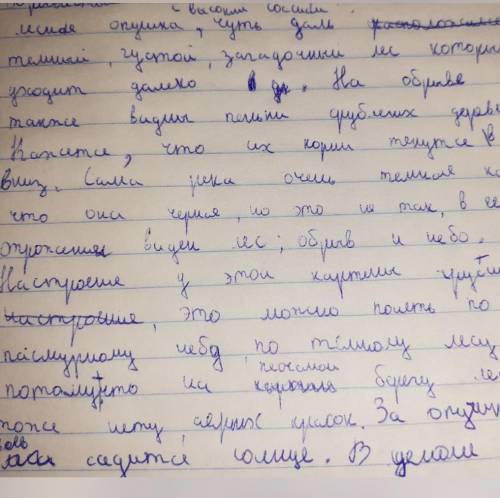 с высокими соснами.
лесная опушка, чуть даль
темный, густой, загадочный лес которы
уходит далеко в да. На обрыве
также видны пеньки срубленых дерев
Кажется, что их корни тянутся в
вниз. Сама река очень темная ка
что она черная, но это не так, в её
отрожаниях виден лес, обрыв и небо.
Настроение у этой картины грустн
настроение, это можно понять по
пасмурному небу, по тёмному лесу
потому что на песчаном берегу
тоже нету ярких красок. За опушк
садится солнце. В целом